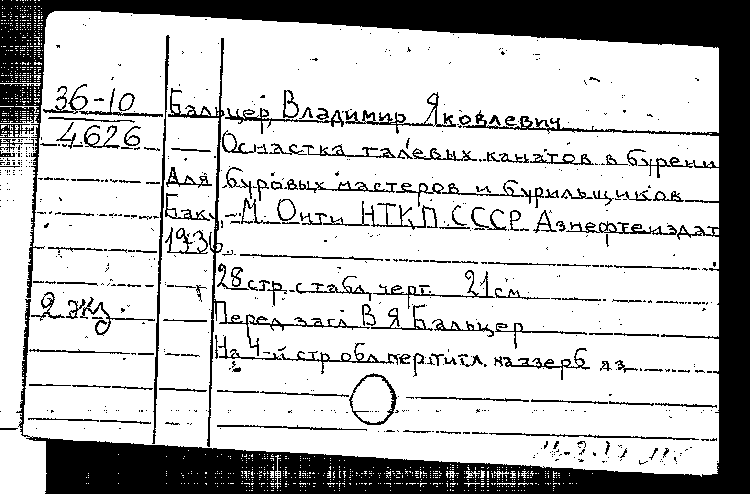 36-10
4626
Бальцер, Владимир Яковлевич
Оснастка талевых канатов в бурени
Для буровых мастеров и бурильщиков
Баку -М. Онти НТКП СССР Азнефтеиздат
1936.
28 стр. с табл, черт. 21 см
2 экз.
Перед загл В Я Бальцер
На 4-й стр обл пер тигл. на азерб яз